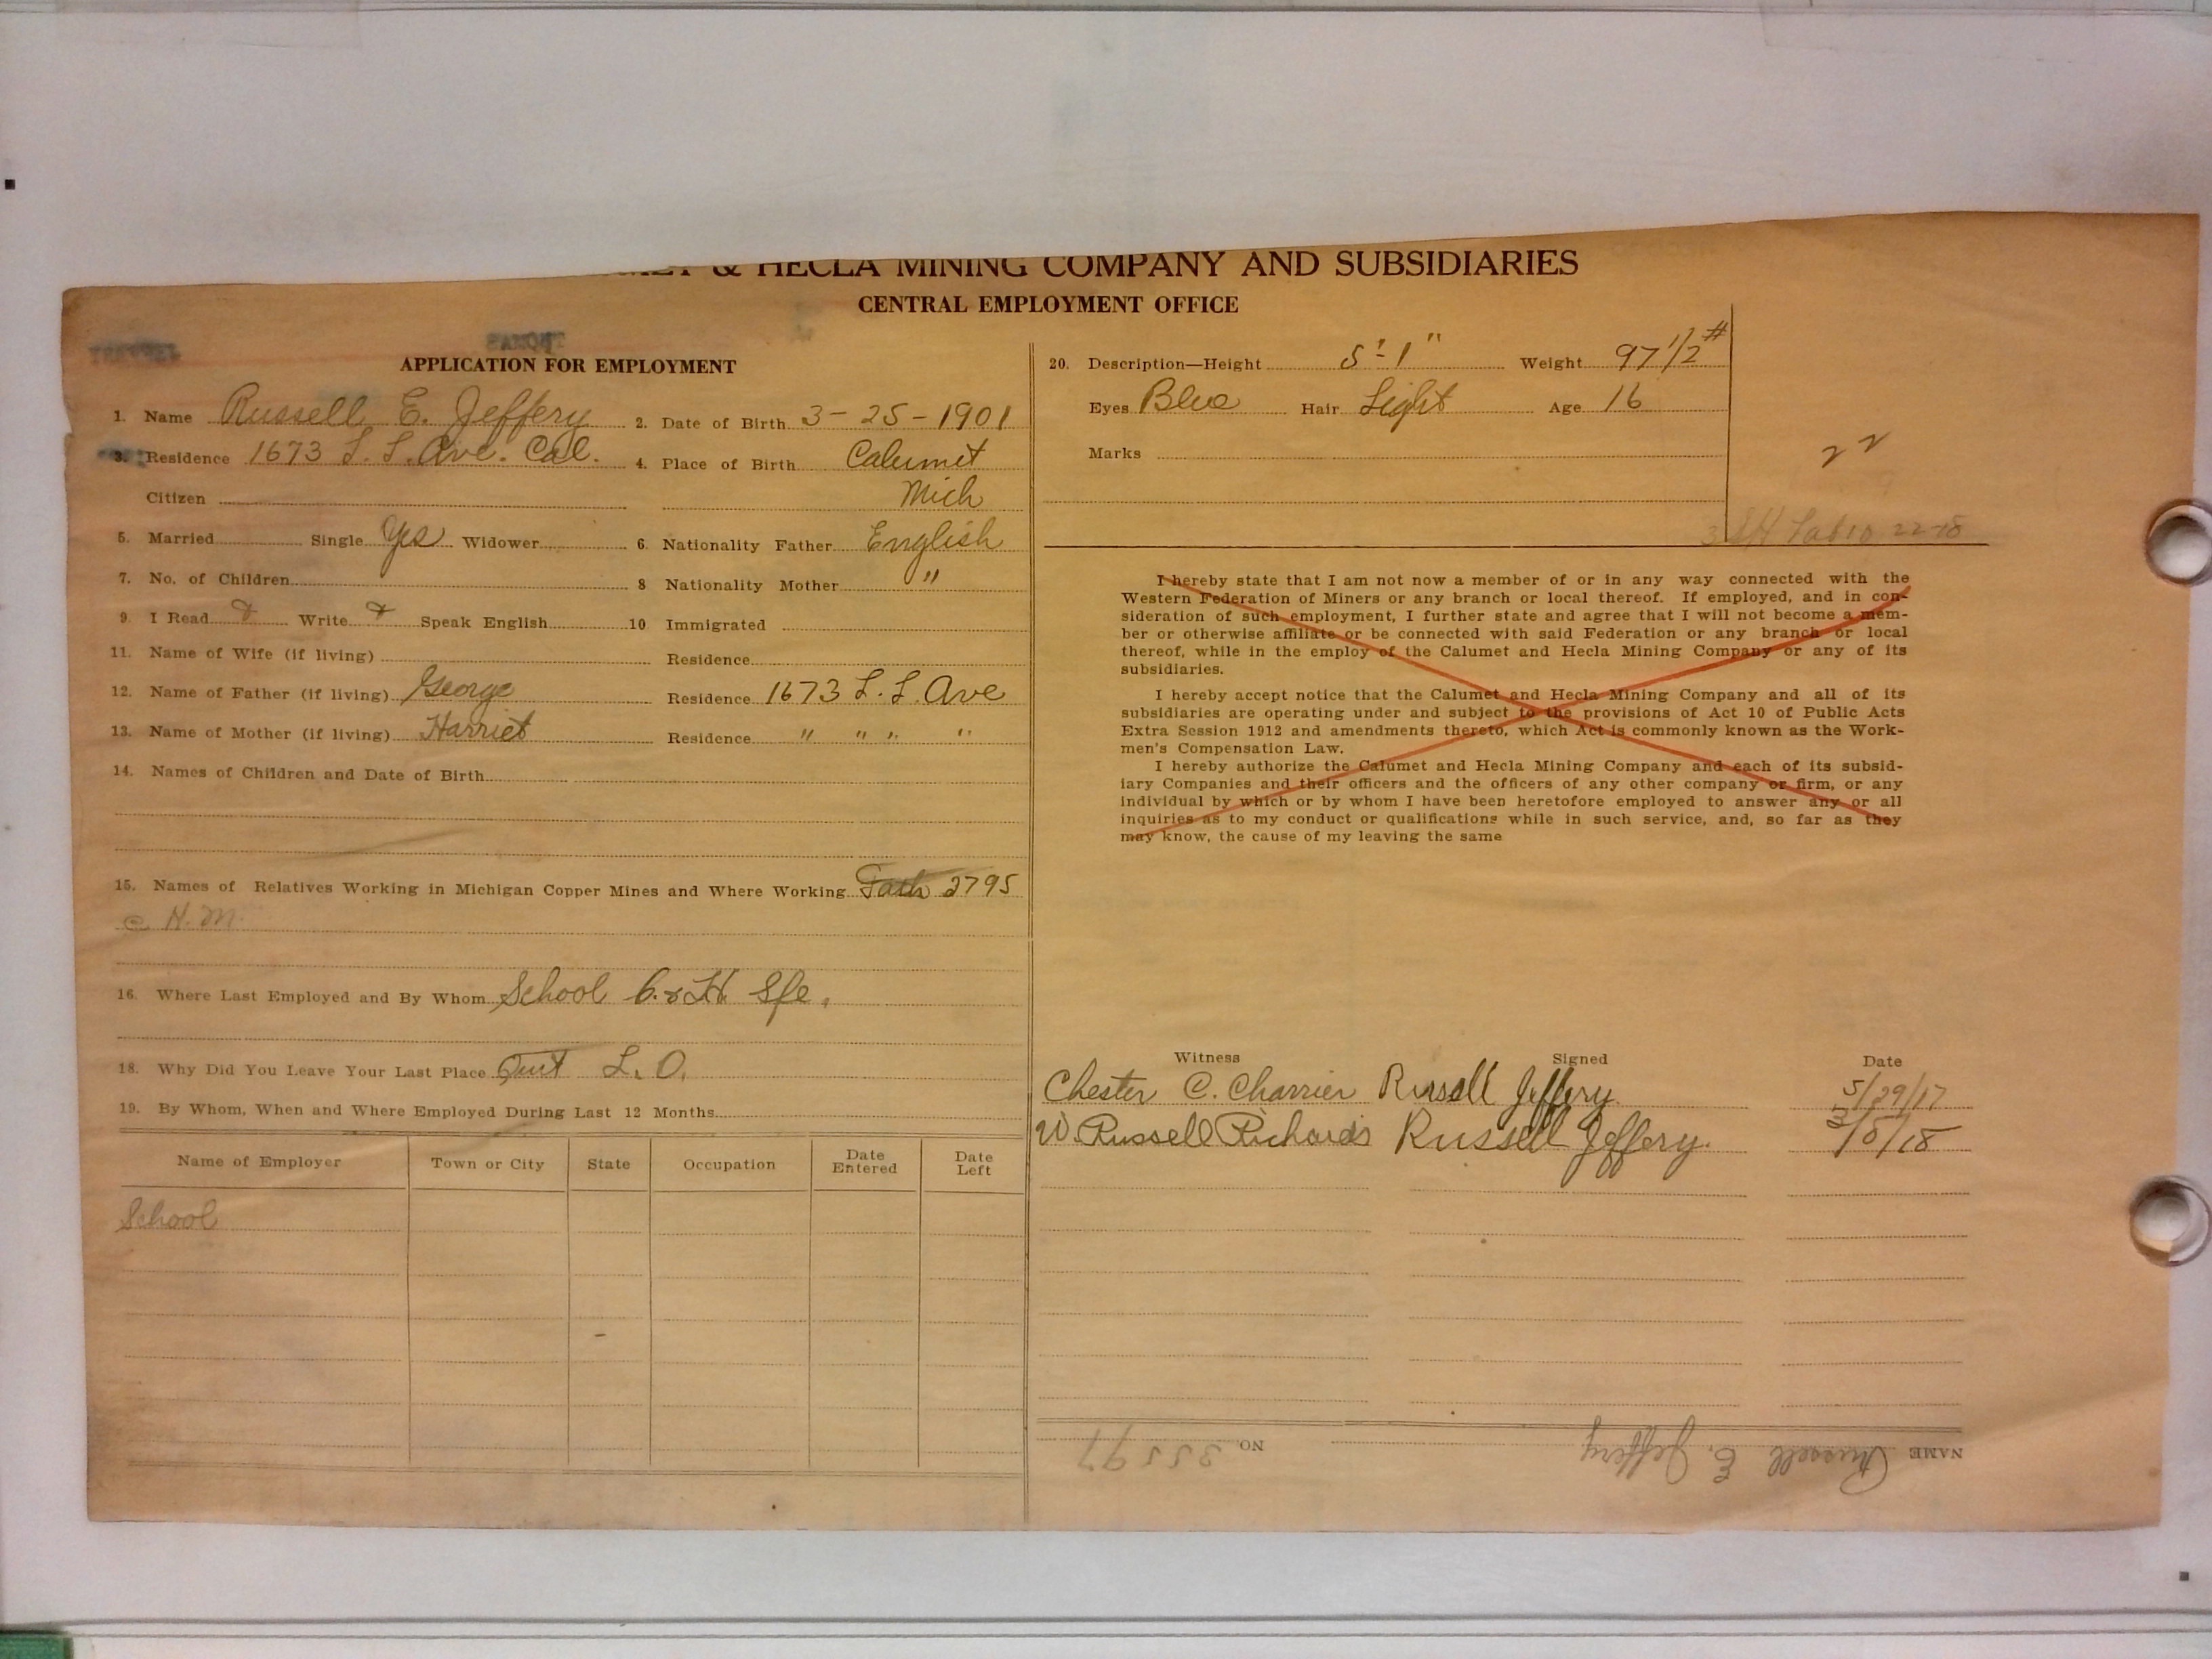 & HECLA MINING COMPANY AND SUBSIDIARIES
CENTRAL EMPLOYMENT OFFICE
APPLICATION FOR EMPLOYMENT
1. Name Russell E. Jeffery 2. Date of Birth 3-25-1901
3. Residence 1673 L. L. Ave. Cal. 4. Place of Birth Calumet
Citizen Mich
5. Married Single Yes Widower 6. Nationality Father English
7. No. of Children 8 Nationality Mother "
9. I Read Write Speak English 10 Immigrated
11. Name of Wife (if living) Residence
12. Name of Father (if living) George Residence 1673 L. L. Ave
13. Name of Mother (if living) Harriet Residence " " " "
14. Names of Children and Date of Birth
15. Names of Relatives Working in Michigan Copper Mines and Where Working Fath 2795
C H. M.
16. Where Last Employed and By Whom School C. & H.
18. Why Did You Leave Your Last Place Quit L. O.
19. By Whom, When and Where Employed During Last 12 Months
Name of Employer Town or City State Occupation Date Entered Date Left
School
20. Description—Height 5'-1" Weight 97 1/2 #
Eyes Blue Hair Light Age 16
Marks
22
22-18
I hereby state that I am not now a member of or in any way connected with the
Western Federation of Miners or any branch or local thereof. If employed, and in con-
sideration of such employment, I further state and agree that I will not become a mem-
ber or otherwise affiliate or be connected with said Federation or any branch or local
thereof, while in the employ of the Calumet and Hecla Mining Company or any of its
subsidiaries.
I hereby accept notice that the Calumet and Hecla Mining Company and all of its
subsidiaries are operating under and subject to the provisions of Act 10 of Public Acts
Extra Session 1912 and amendments thereto, which Act is commonly known as the Work-
men's Compensation Law.
I hereby authorize the Calumet and Hecla Mining Company and each of its subsid-
iary Companies and their officers and the officers of any other company or firm, or any
individual by which or by whom I have been heretofore employed to answer any or all
inquiries as to my conduct or qualifications while in such service, and, so far as they
may know, the cause of my leaving the same
Witness Signed Date
Chester C. Charrier Russell Jeffery 5/29/17
W. Russell Richards Russell Jeffery. 3/5/18
NAME Russell E. Jeffery NO. 35597